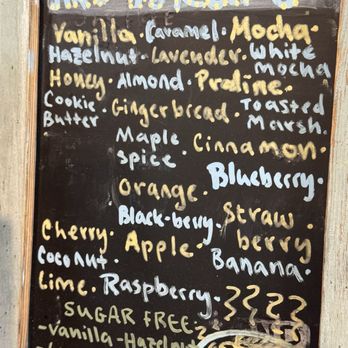 Vanilla. Caramel. Mocha.
Hazelnut. Lavender. White Mocha
Honey. Almond. Praline.
Cookie Butter. Gingerbread. Toasted Marsh.
Maple Spice. Cinnamon.
Blueberry.
Orange.
Black-berry. Strawberry.
Cherry. Apple. Banana.
Coconut.
Lime. Raspberry.
SUGAR FREE:
-Vanilla-Hazelnut